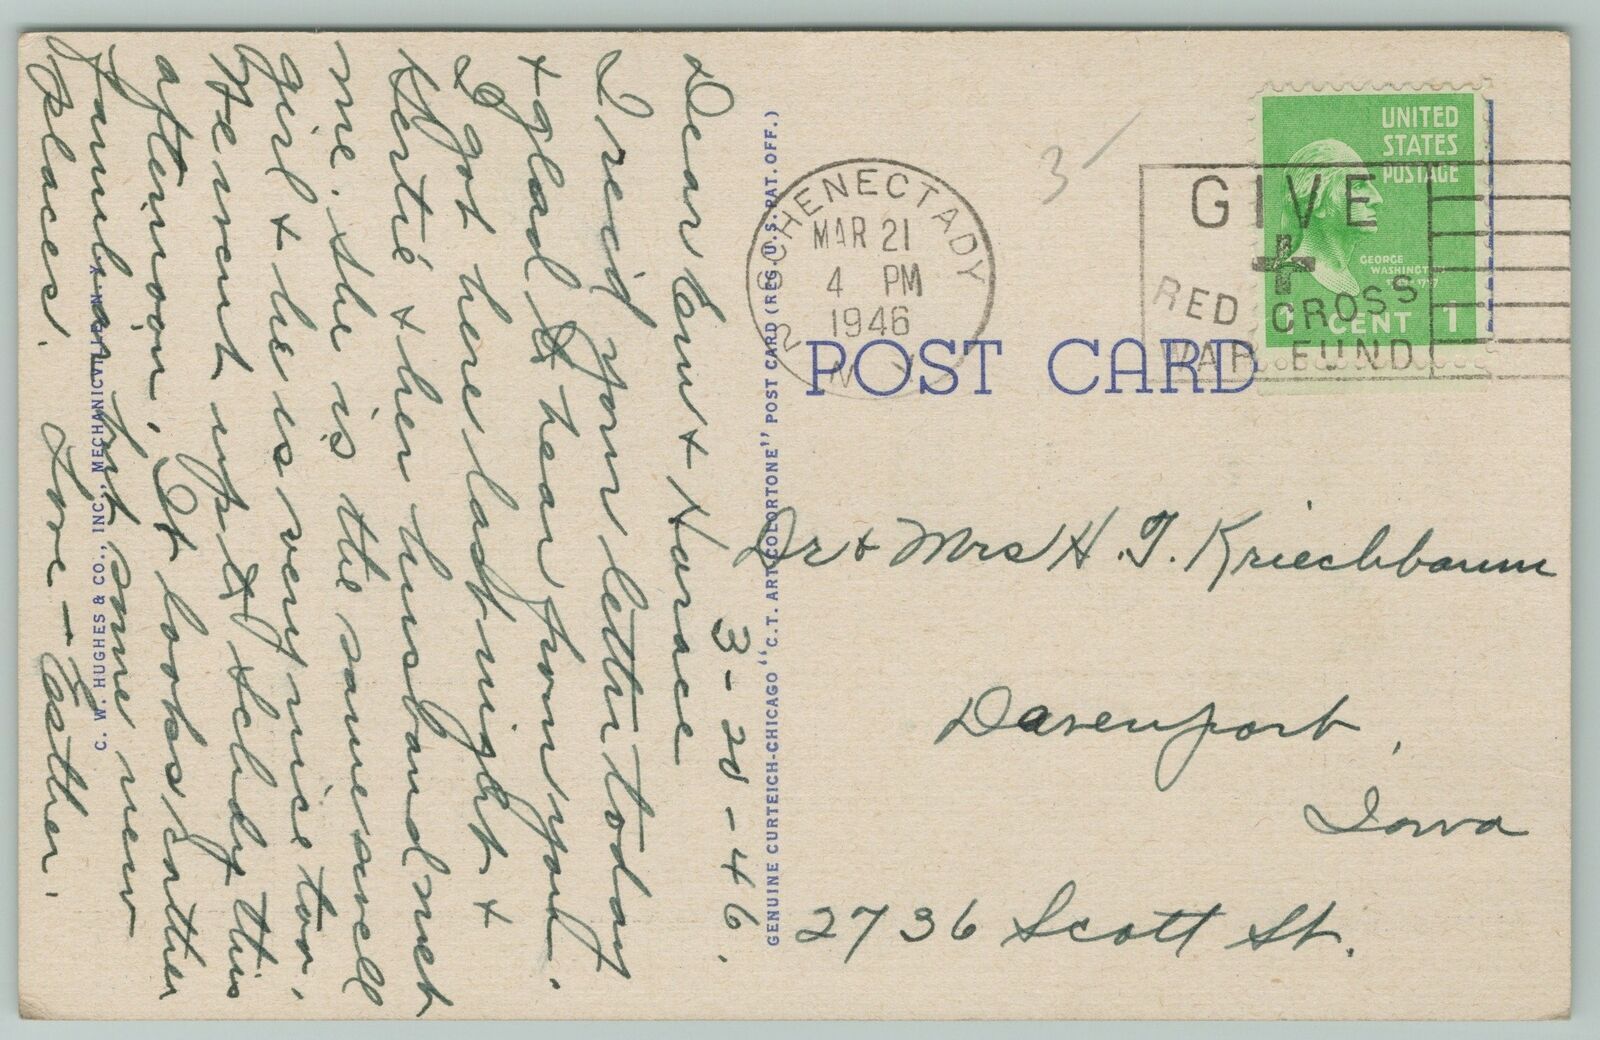 3-20-46.
Dear Erm + Horace
I rec'd your letter today
+ glad to hear from you.
I got here last night +
Gertie + her husband met
me. She is the same swell
girl + he is very nice too.
We went up to Schdy this
afternoon. It looks rather
familiar but some new
places. Love - Esther.
C. W. HUGHES & CO., INC., MECHANICVILLE, N. Y.
GENUINE CURTEICH-CHICAGO "C.T. ART-COLORTONE" POST CARD (REG. U.S. PAT. OFF.)
POST CARD
SCHENECTADY
MAR 21
4 PM
1946
2 N
3-
GIVE
RED CROSS
WAR FUND
UNITED
STATES
POSTAGE
GEORGE
WASHINGTON
1 CENT 1
Dr + Mrs H. J. Kriechbaum
Davenport,
Iowa
2736 Scott St.